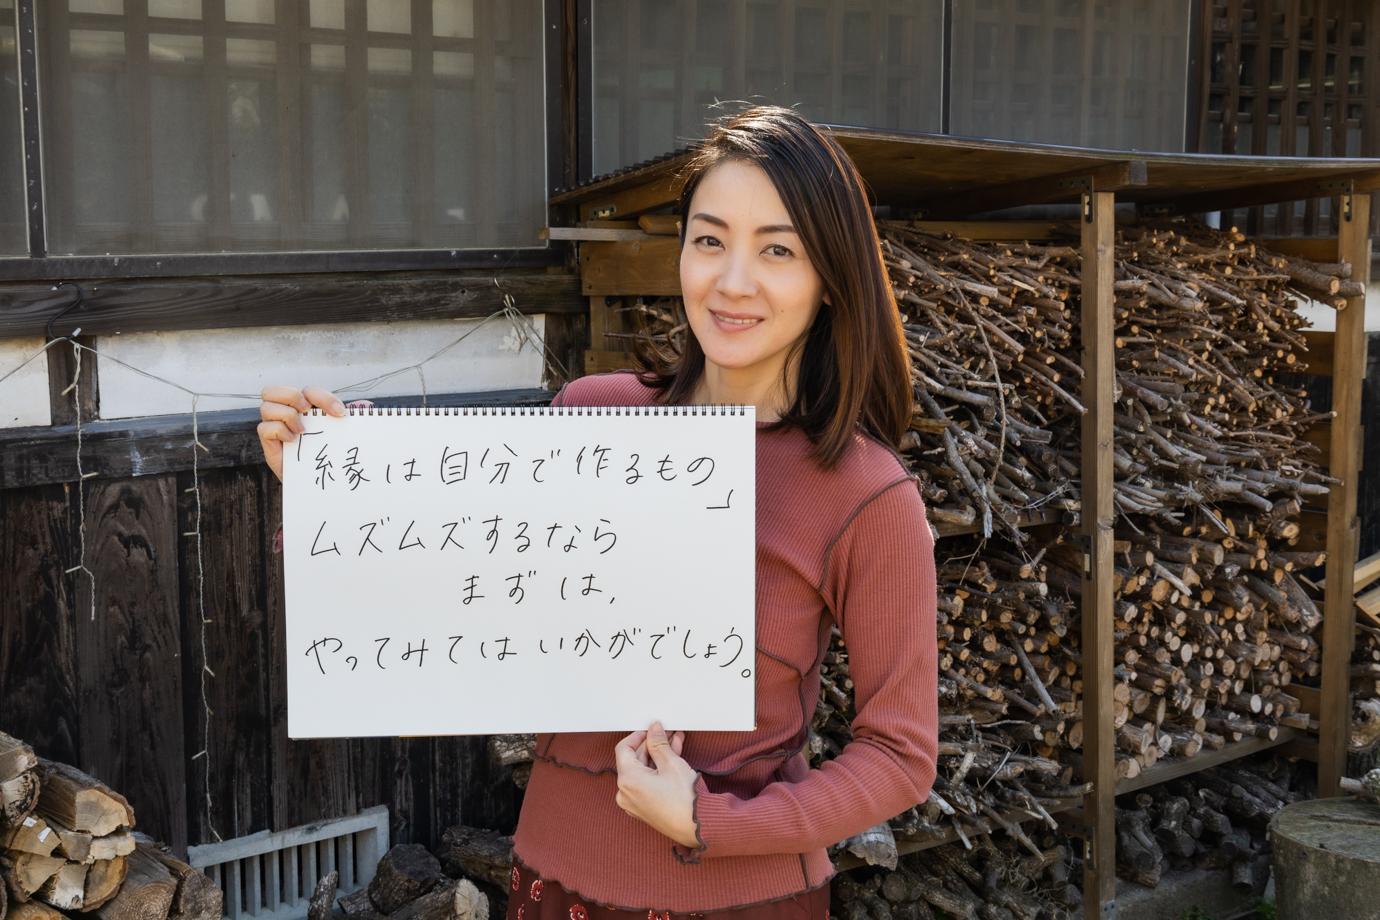 「縁は自分で作るもの」
ムズムズするなら
まずは、
やってみてはいかがでしょう。